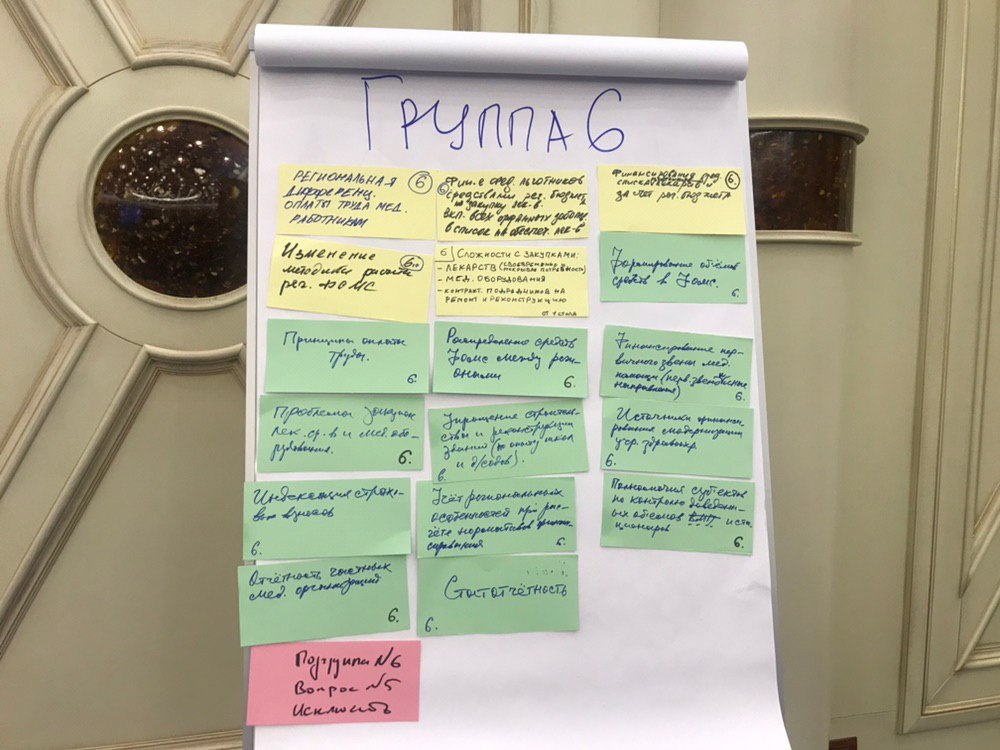 ГРУППА 6
РЕГИОНАЛЬНАЯ 6
ДИФФЕРЕНЦ.
ОПЛАТЫ ТРУДА МЕД.
РАБОТНИКАМ
6 ЛЬГОТНИКОВ
средствами рег. бюджета
на закупку лек-в.
вкл. всех орфанных
в список на обеспеч. лек-в
Финансирования 6.
списка
за счет рег. бюджета
Изменение 6
методики расчета
рег. ФОМС
6 СЛОЖНОСТИ С ЗАКУПКАМИ:
- ЛЕКАРСТВ (СВОЕВРЕМЕННО ПОТРЕБНОСТЬ)
- МЕД. ОБОРУДОВАНИЯ
- КОНТРАКТ. ПОДРЯДЧИКОВ НА
РЕМОНТ И РЕКОНСТРУКЦИЮ
ОТ 1 СТОЛА
Формирование объёмов
средств в Фомс.
6.
Принципы оплаты
труда.
6.
Распределение средств
Фомс между реги-
онами
6.
Финансирование пер-
вичного звена мед.
помощи (перв. звено
направления)
6.
Проблемы закупок
лек. ср-в и мед. обо-
рудования.
6.
Упрощение строитель-
ства и реконструкции
зданий (по опыту школ
и д/садов).
6.
Источники финанси-
рования модернизации
учр. здравоохр.
6.
Индексация страхо-
вых взносов
6.
Учёт региональных
особенностей при рас-
чёте нормативов финан-
сирования
6.
Полномочия субъектов
по контролю доведен-
ных объемов ВМП и ста-
ционаров
6.
Отчётность частных
мед. организаций
6.
Статотчётность
6.
Подгруппа №6
Вопрос №5
Исключить